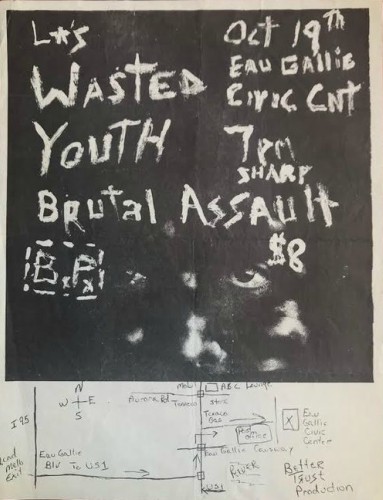 L*'s
WASTED
YOUTH
Oct 19th
EAU GALLIE
CIVIC CNT
7pm
SHARP
BRUTAL ASSAULT
$8
B.P.
N
W E
S
I 95
Exit
Aurora Rd.
ABC Lounge
store
Post
office
Eau
Gallie
Civic
Center
X
Eau Gallie
Blv To US1
Eau Gallie Causeway
RIVER
US1
Better
Trust
Production